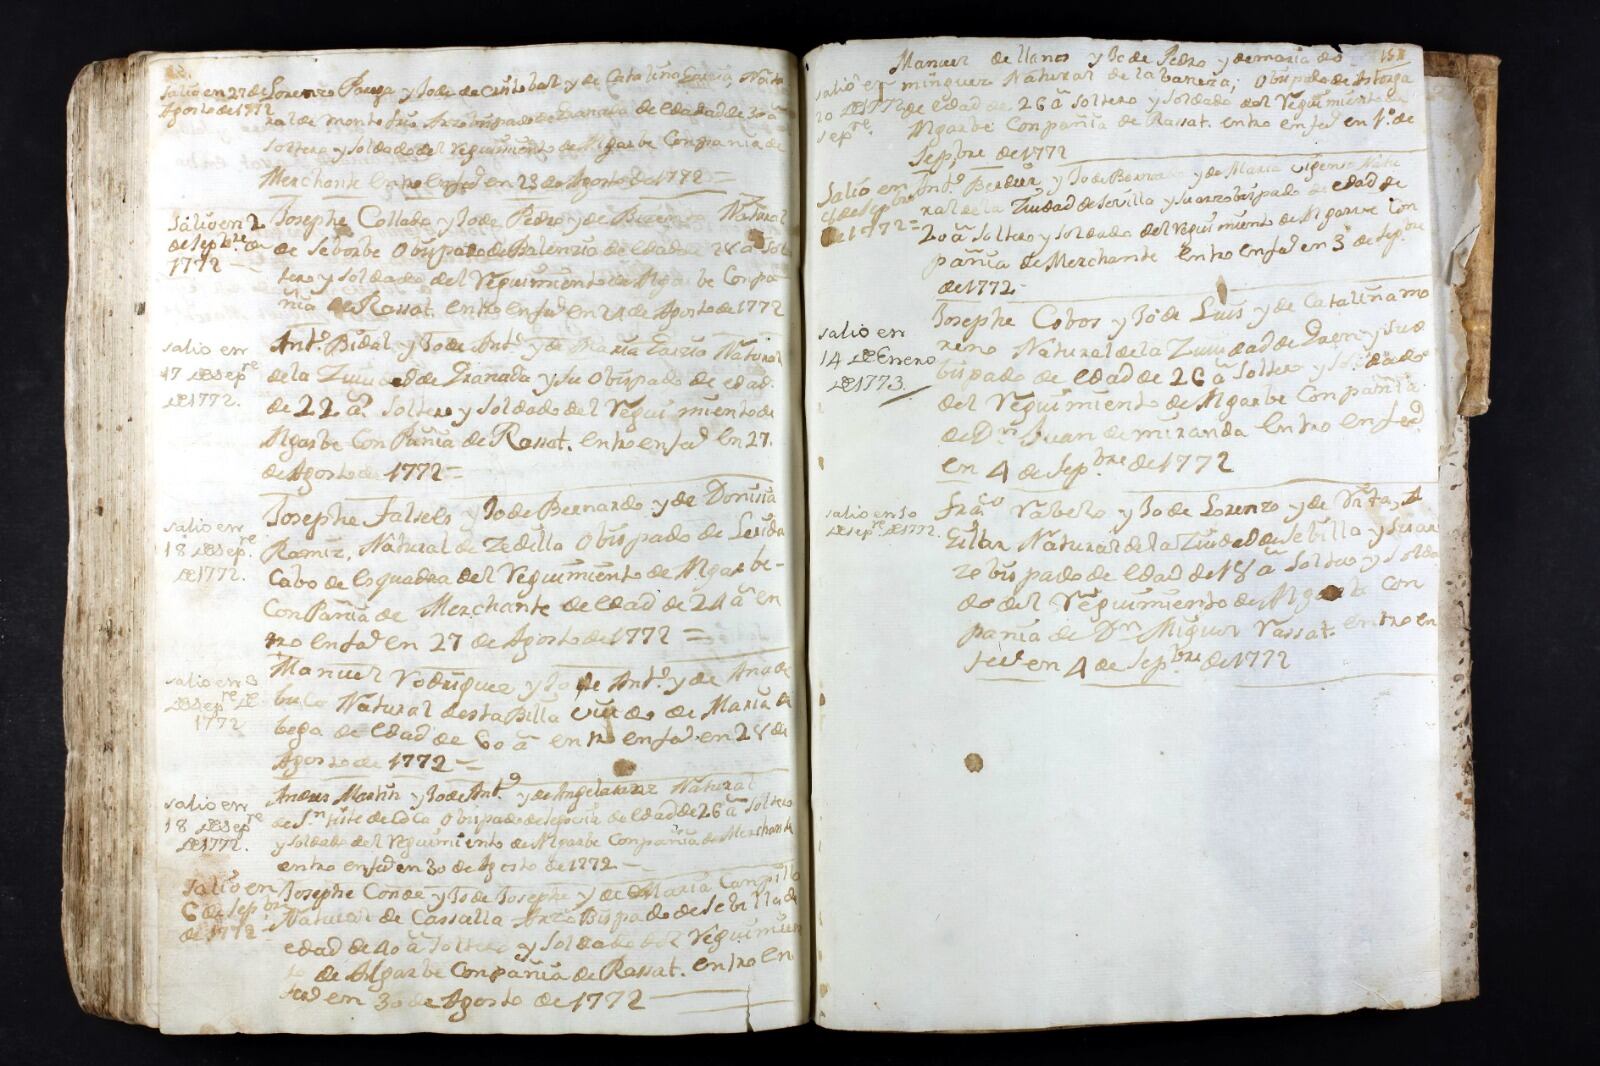 Salio en 27 de
Agosto de 1772
Lorenzo y Jo de de Cristobal y de Catalina Garcia, Natu
ral de Monte frio Arzobispado de Granada de Edad de 30 a
Soltero y Soldado del Reguimiento de Algarbe Compania de
Merchante Entro Enfd en 23 de Agosto de 1772 =
Salio en 2
de Sepbre de
1772 —
Josephe Collado y Jo de Pedro y de Bizenta Natural
de Seborbe Obispado de Balenzia de Edad de 28 a Sol
tero y Soldado del Reguimiento de Algarbe Conpa
ñia de Rassat. Entro Enfd en 24 de Agosto de 1772
Salio en
17 de Sepre
de 1772.
Anto Bidal y Jo de Anto y de Maria Natural
de la Ziudad de Granada y su Obispado de edad
de 22 a Soltero y Soldado del Reguimiento de
Algarbe Conpañia de Rassat. Entro enfd En 27.
de Agosto de 1772 =
Salio en
18 de Sepre
de 1772.
Josephe Falsels y Jo de Bernardo y de Donisia
Ramiz, Natural de Zedilla Obispado de Lerida
Cabo de Esquadra del Reguimiento de Algarbe-
Conpañia de Merchante de Edad de 24 a en
tro enfd en 27 de Agosto de 1772 =
Salio en 3
de Sepre de
1772
Manuel Rodriguez y Jo de Anto y de Ana de
Natural desta Billa viudo de Maria de
bega de Edad de 60 a entro enfd en 28 de
Agosto de 1772 =
Salio en
18 de Sepre
de 1772.
Andres Martin y Jo de Anto y de Angela Natural
de Sn tuste de Coca Obispado de Segovia de Edad de 26 a Soltero
y Soldado del Reguimiento de Algarbe Compañia de Merchante
entro enfd en 30 de Agosto de 1772 —
Salio en
6 de Sepbre
de 1772
Josephe Conde y Jo de Josephe y de Maria Canpillo
Natural de Cassalla Arzobispado de Sebilla de
edad de 40 a Soltero y Soldado del Reguimien
to de Algarbe Conpañia de Rassat. entro En
fed en 30 de Agosto de 1772
Salio en
20 de
Sepre
de 1772
Manuel de llanos y Jo de Pedro y de maria do
minguez Natural de la baneza, Obispado de Astorga
de Edad de 26 a Soltero y Soldado del Reguimiento de
Algarbe Conpañia de Rassat. entro enfd en 1o de
Sepbre de 1772
Salio en
9 de Sepbre
de 1772 =
Anto y Jo de Bernabe y de Maria Natu
ral de la Ziudad de Sevilla y su arzobispado de Edad de
20 a Soltero y Soldado del Reguimiento de Algarve Con
pañia de Merchante Entro enfd en 3 de Sepbre
de 1772-
Salio en
14 de Enero
de 1773.
Josephe Cobos y Jo de Luis y de Catalina mo
reno Natural de la Ziudad de Jaen y su o
bispado de Edad de 26 a Soltero y Soldado
del Reguimiento de Algarbe Conpañia
de Dn Juan de miranda Entro en fed
en 4 de Sepbre de 1772
Salio en 10
de Sepre de 1772.
Franco Rabelo y Jo de Lorenzo y de
Natural de la Ziudad de Sebilla y su ar
zobispado de Edad de 18 a Soltero y Solda
do del Reguimiento de Algarbe Con
pañia de Dn Miguel Rassat. entro en
fed en 4 de Sepbre de 1772